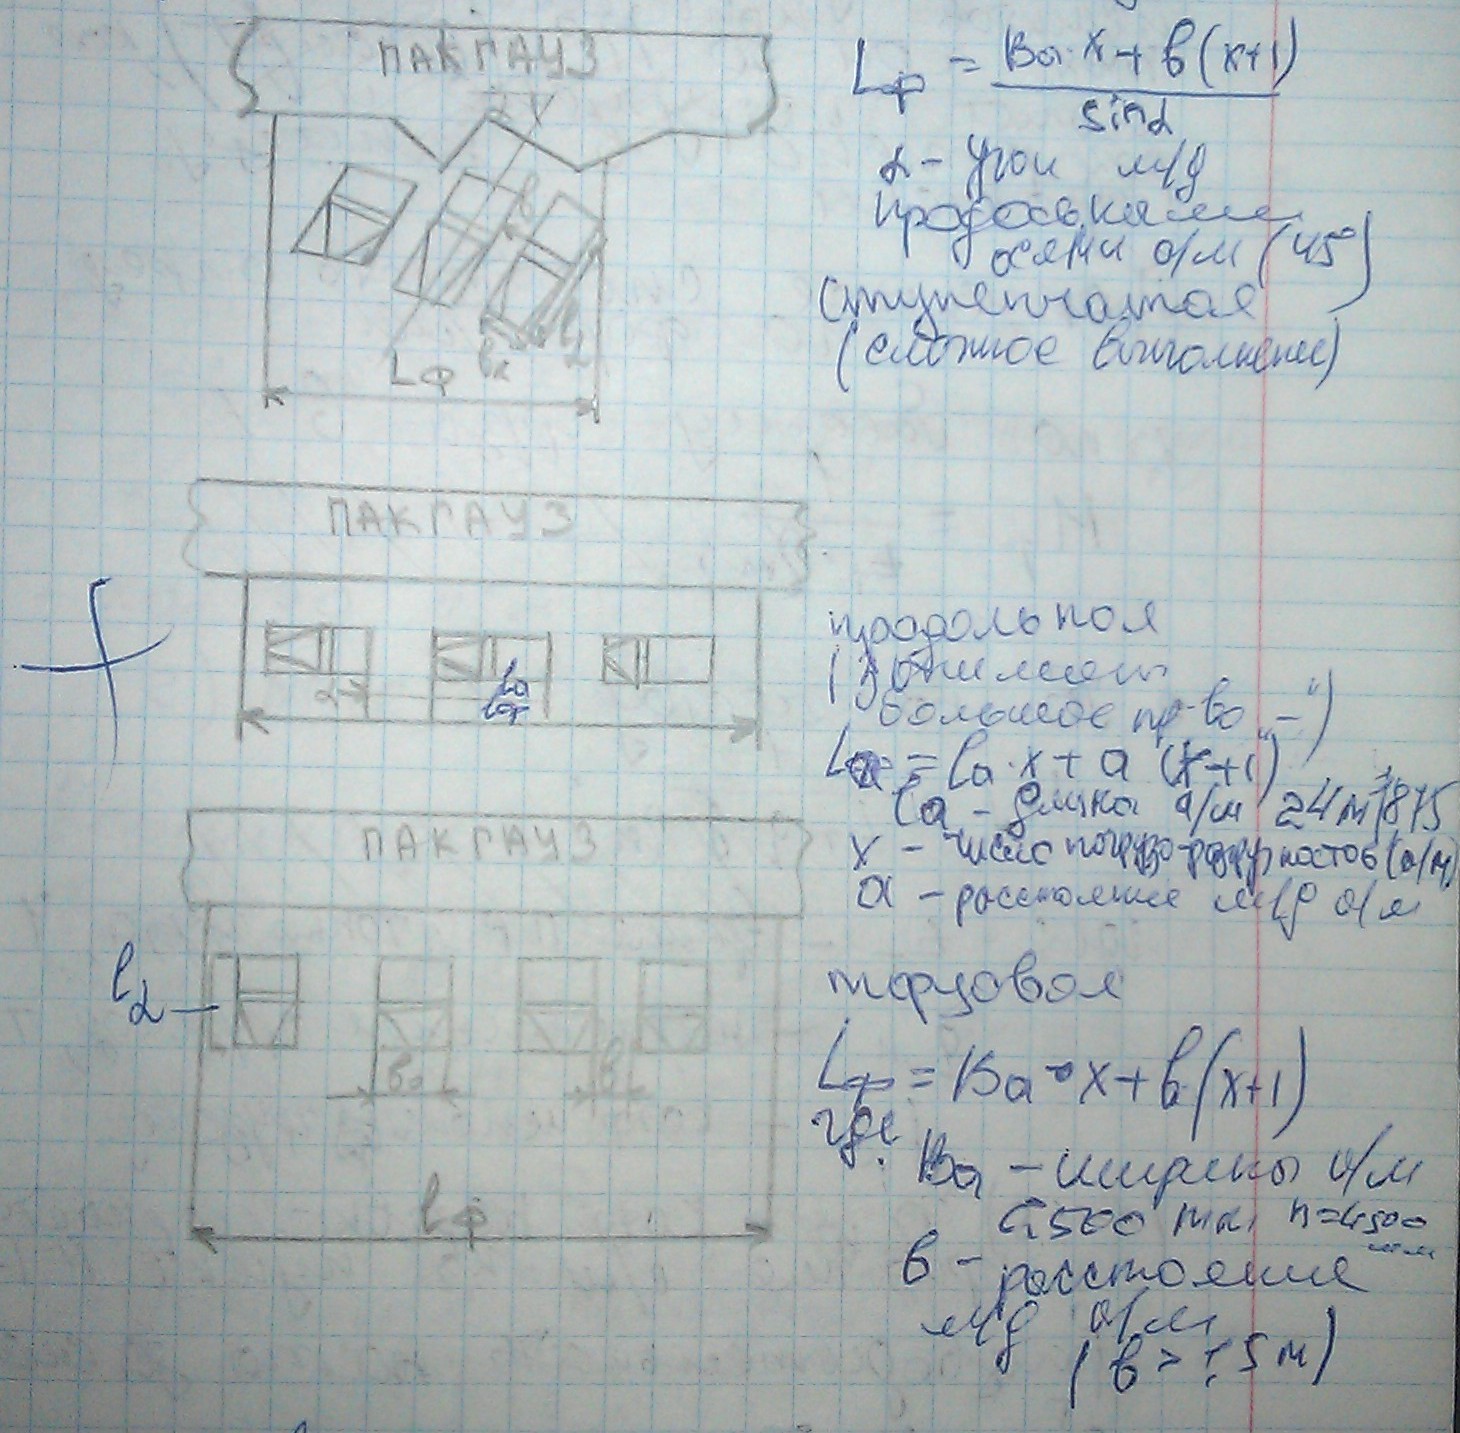 ПАКГАУЗ
Lф = Bа·x + в(x+1)
sinα
α – угол м/д
продольными
осями а/м (45°)
ступенчатая
(сложное выполнение)
Lф
ПАКГАУЗ
продольная
(занимает
большое пр-во „–“)
= lа·x + a(x+1)
lа – длина а/м 24м
x – число погрузо-разгр постов (а/м)
а – расстояние м/д а/м
ПАКГАУЗ
lα
Bа
в
lф
торцовая
Lф = Bа·x + в(x+1)
где:
Bа – ширина а/м
h=4500
мм
в – расстояние
м/д а/м